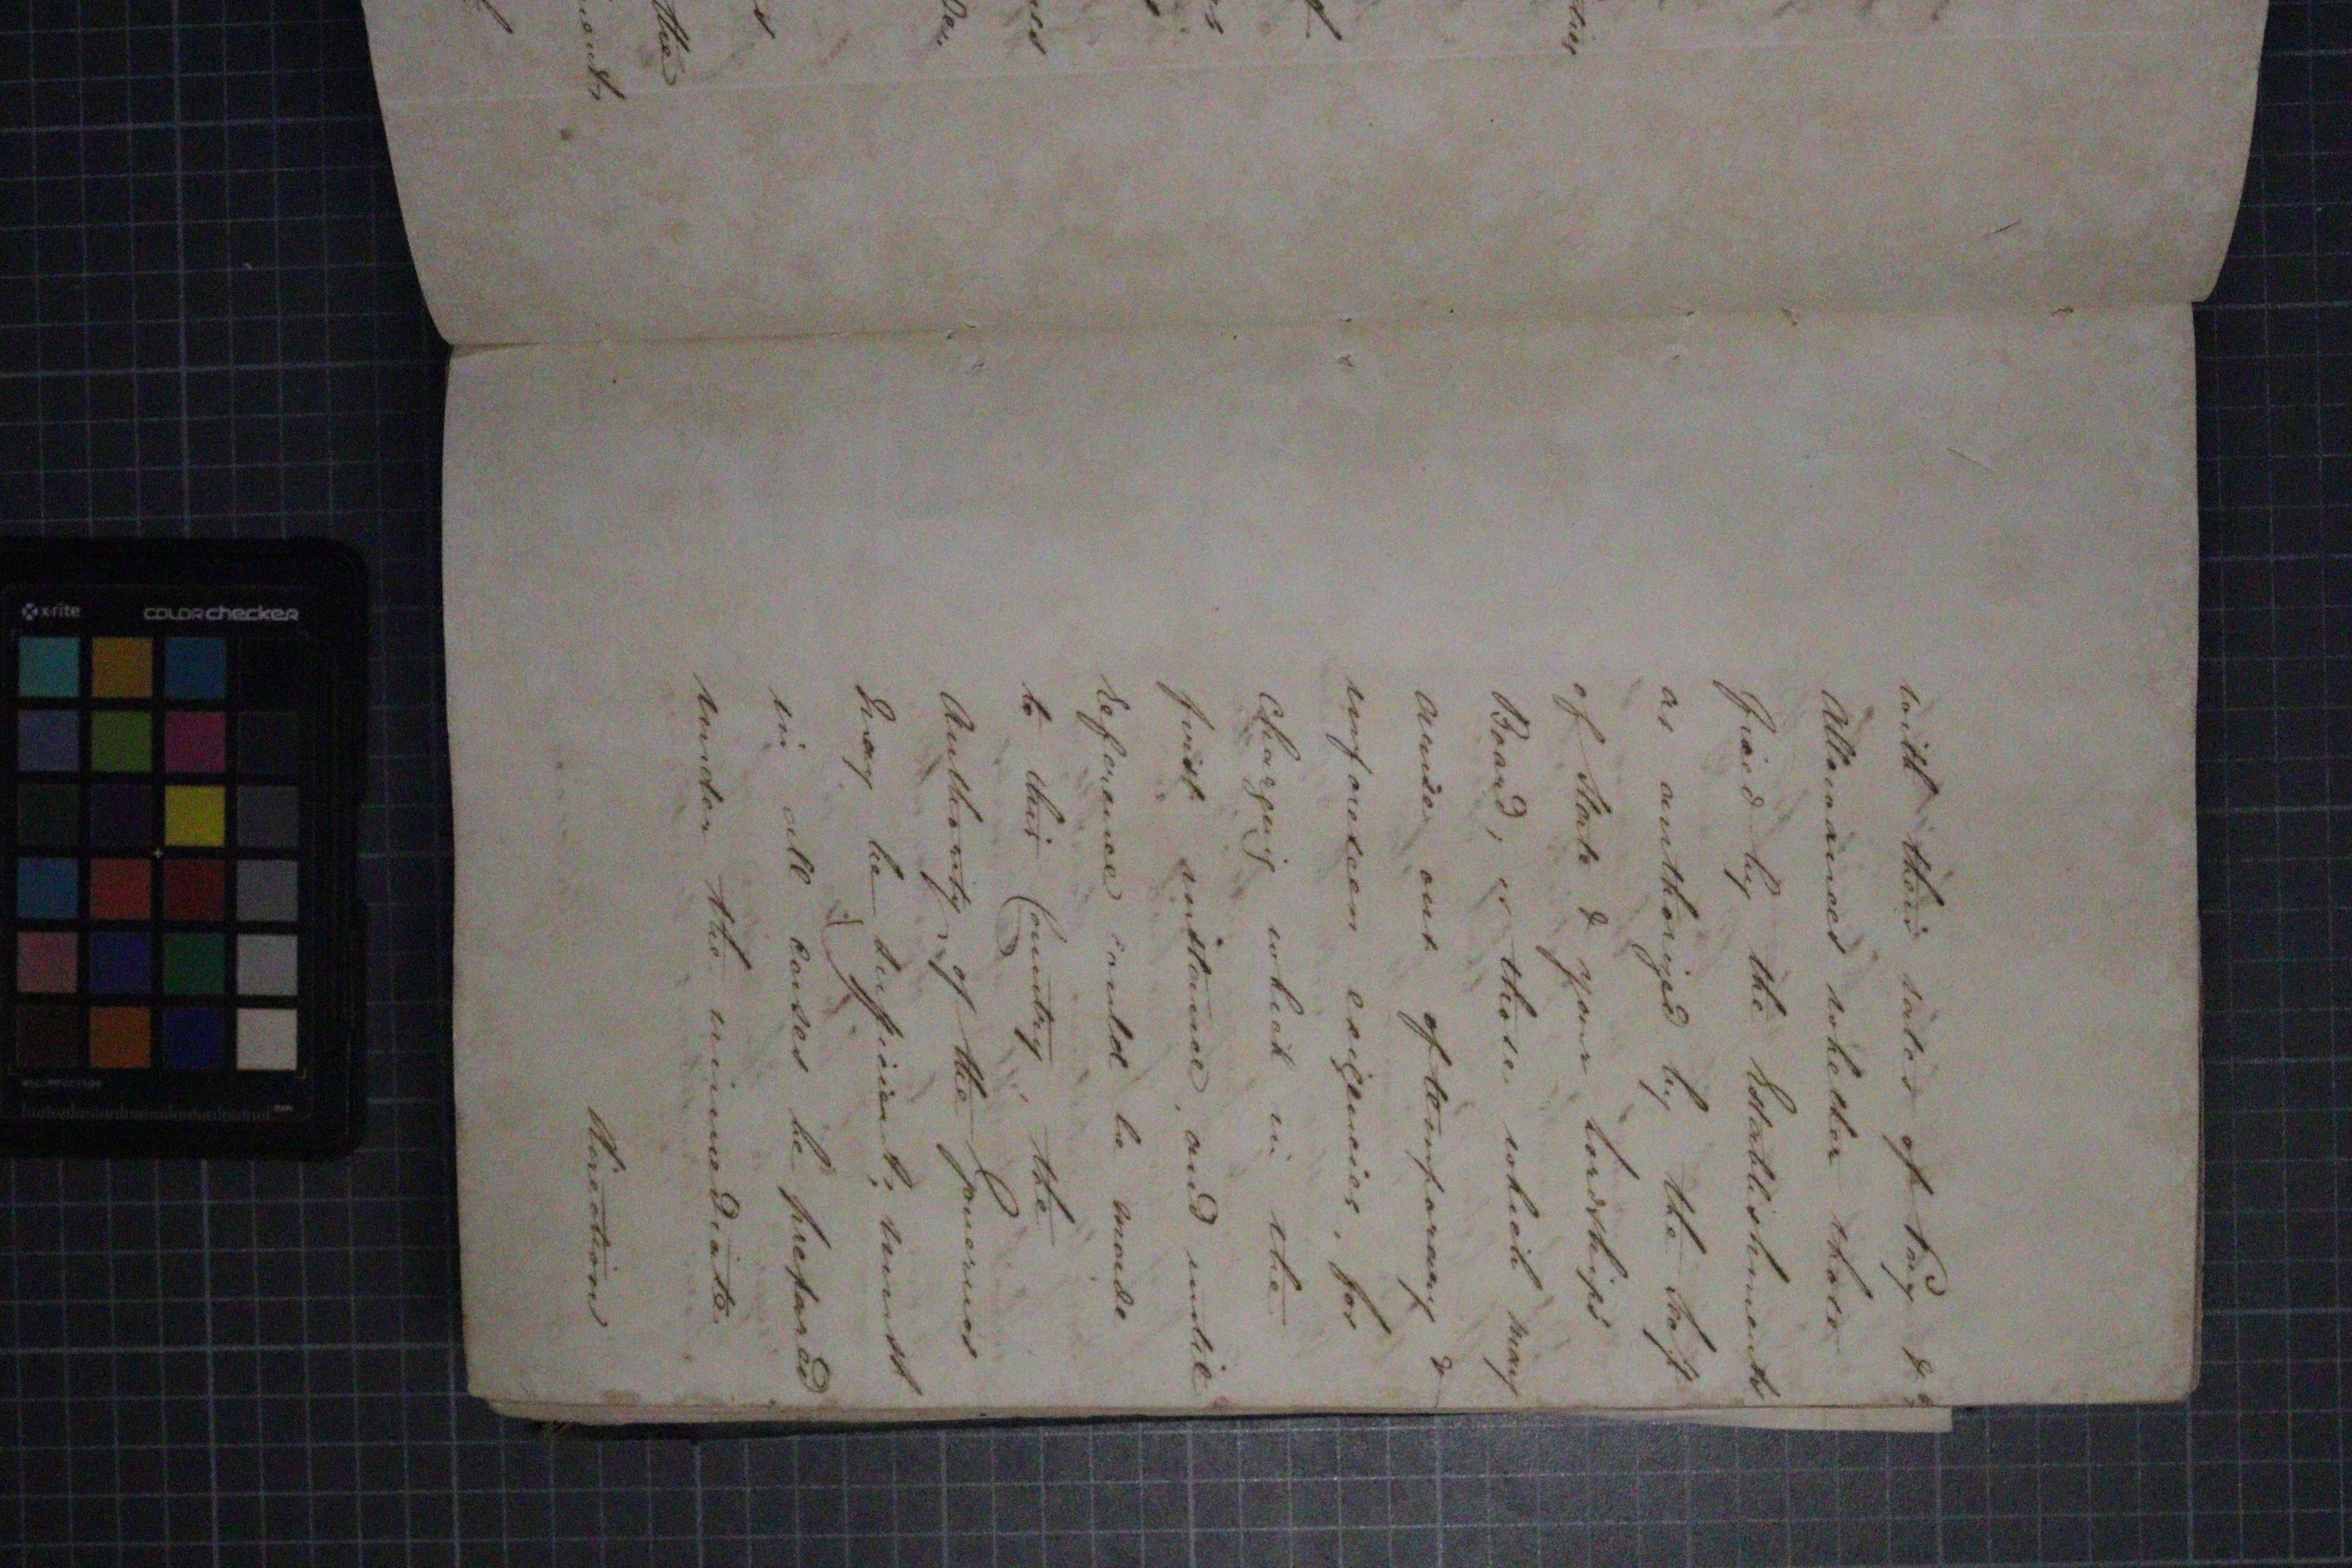 with their rates of Pay &c
Allowances whether those
fixed by the Establishments
as authorized by the Secy
of State & your Lordships
Board, or those which may
arise out of temporary &
unforeseen exigencies, for
Charging which in the
first instance, and until
Reference could be made
to this Country, the
Authority of the Governor
may be sufficient; must
in all cases be prepared
under the immediate
direction
the
x-rite
colorchecker